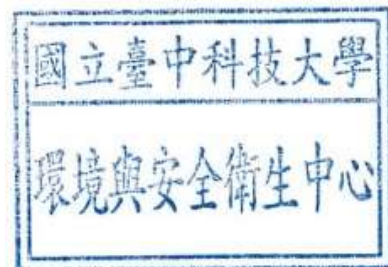 國立臺中科技大學
環境與安全衛生中心